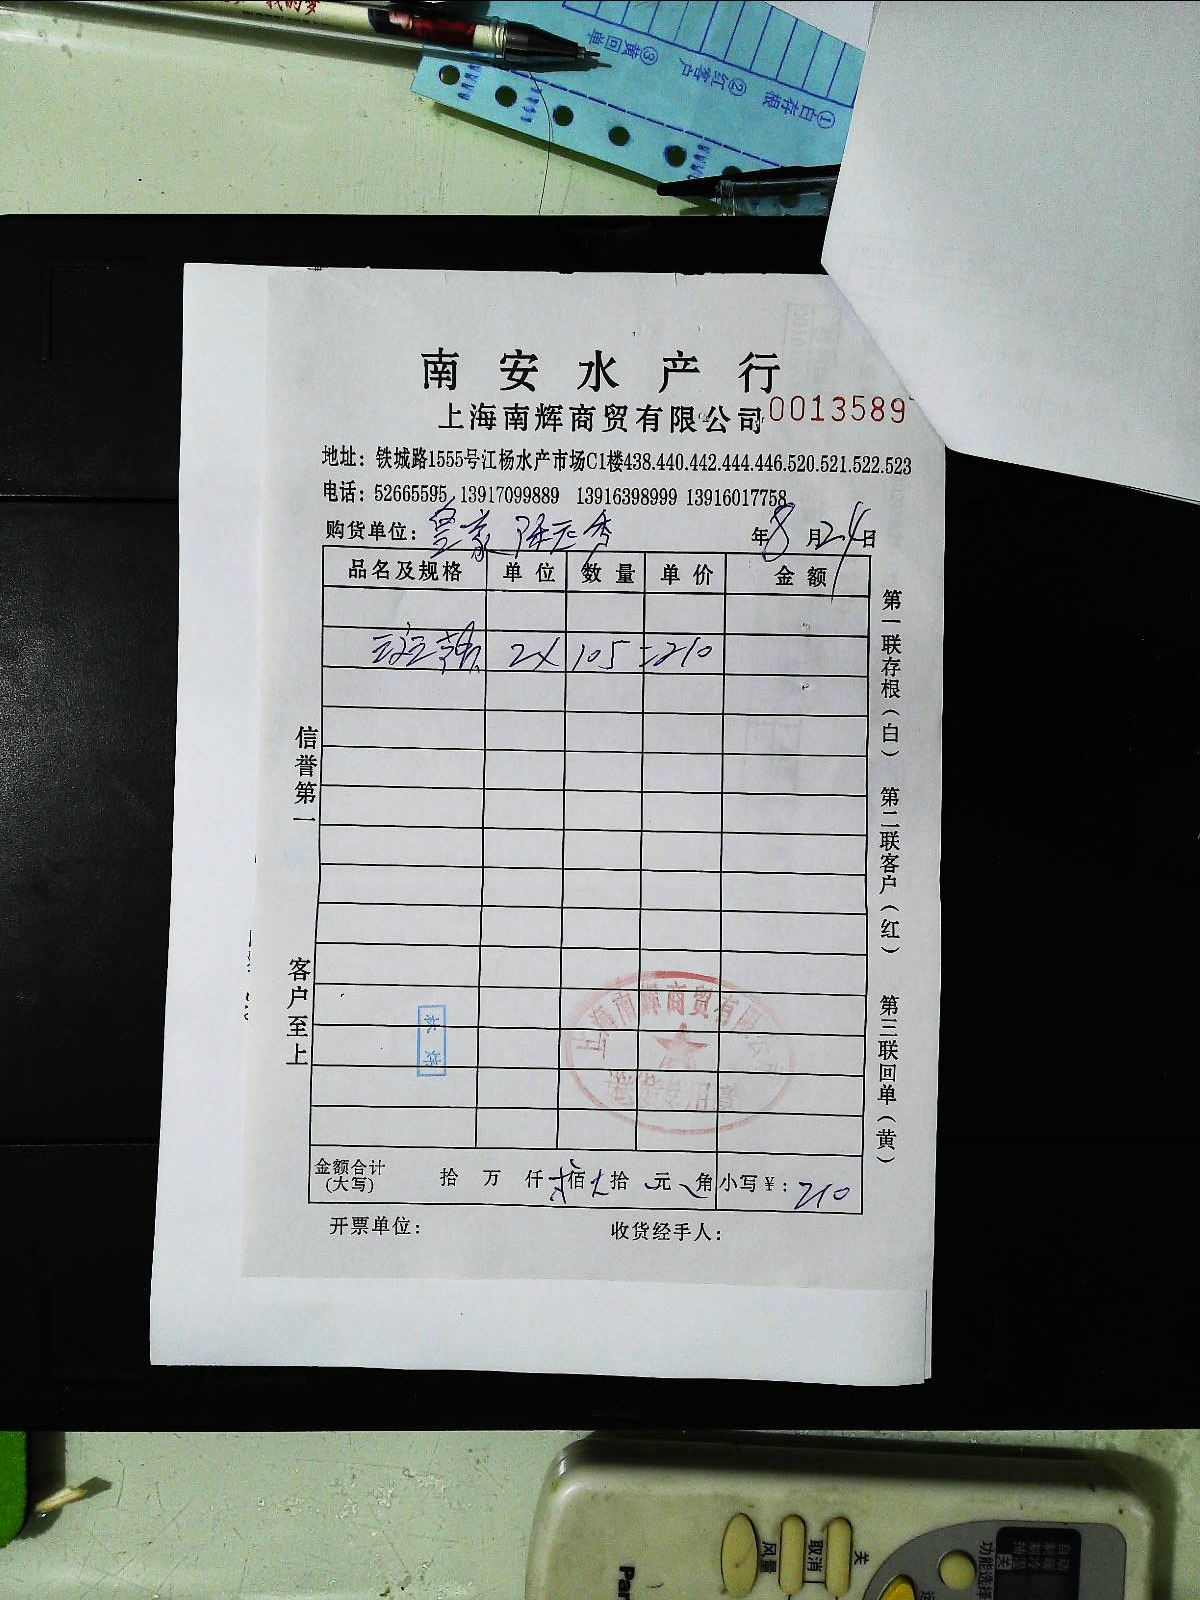 ③黄回单
②红客户
①白存根
南安水产行
上海南辉商贸有限公司 0013589
地址：铁城路1555号江杨水产市场C1楼438.440.442.444.446.520.521.522.523
电话：52665595 13917099889 13916398999 13916017758
购货单位： 年8月24日
品名及规格 单位 数量 单价 金额
2X 105 =210
信誉第一
客户至上
第一联存根（白） 第二联客户（红） 第三联回单（黄）
上海南辉商贸有限公司
金额合计（大写） 拾 万 仟 佰 拾 元 角 小写￥：210
开票单位： 收货经手人：
关
取消
风量
功能选择